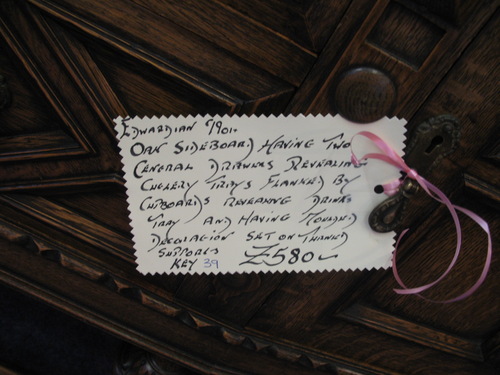 EDWARDIAN C1901.
OAK SIDEBOARD HAVING TWO
CENTRAL DRAWERS REVEALING
CUTLERY TRAYS FLANKED BY
CUPBOARDS REVEALING DRINKS
TRAY AND HAVING MOULDED
DECORATION SET ON TURNED
SUPPORTS
KEY 39 £580